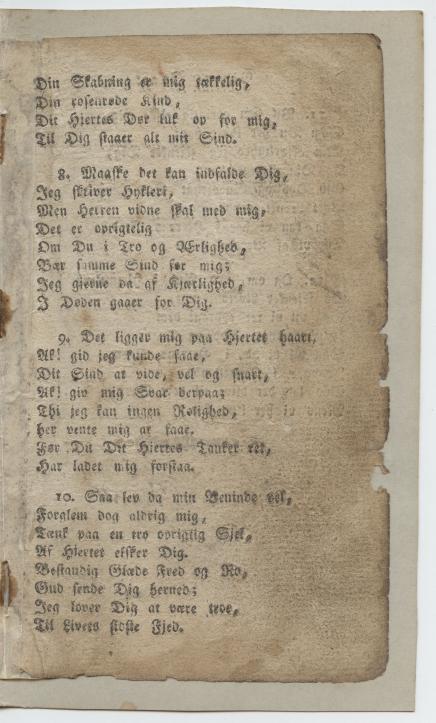 Din Skabning er mig tækkelig,
Din rosenrøde Kind,
Dit Hjertes Dør luk op for mig,
Til Dig staaer alt mit Sind.
8. Maaske det kan indfalde Dig,
Jeg skriver Hykleri,
Men Herren vidne skal med mig,
Det er oprigtelig
Om Du i Tro og Ærlighed,
Bær samme Sind for mig;
Jeg gjerne da af Kjærlighed,
I Døden gaaer for Dig.
9. Det ligger mig paa Hjertet haart,
Ak! gid jeg kunde faae,
Dit Sind at vide, vel og snart,
Ak! giv mig Svar derpaa;
Thi jeg kan ingen Rolighed,
her vente mig at faae.
Før Du Dit Hjertes Tanker ret,
Har ladet mig forstaa.
10. Saa lev da min Veninde vel,
Forglem dog aldrig mig,
Tænk paa en tro oprigtig Sjel,
Af Hjertet elsker Dig.
Bestandig Glæde Fred og Ro,
Gud sende Dig herned;
Jeg lover Dig at være troe,
Til Livets sidste Fjed.